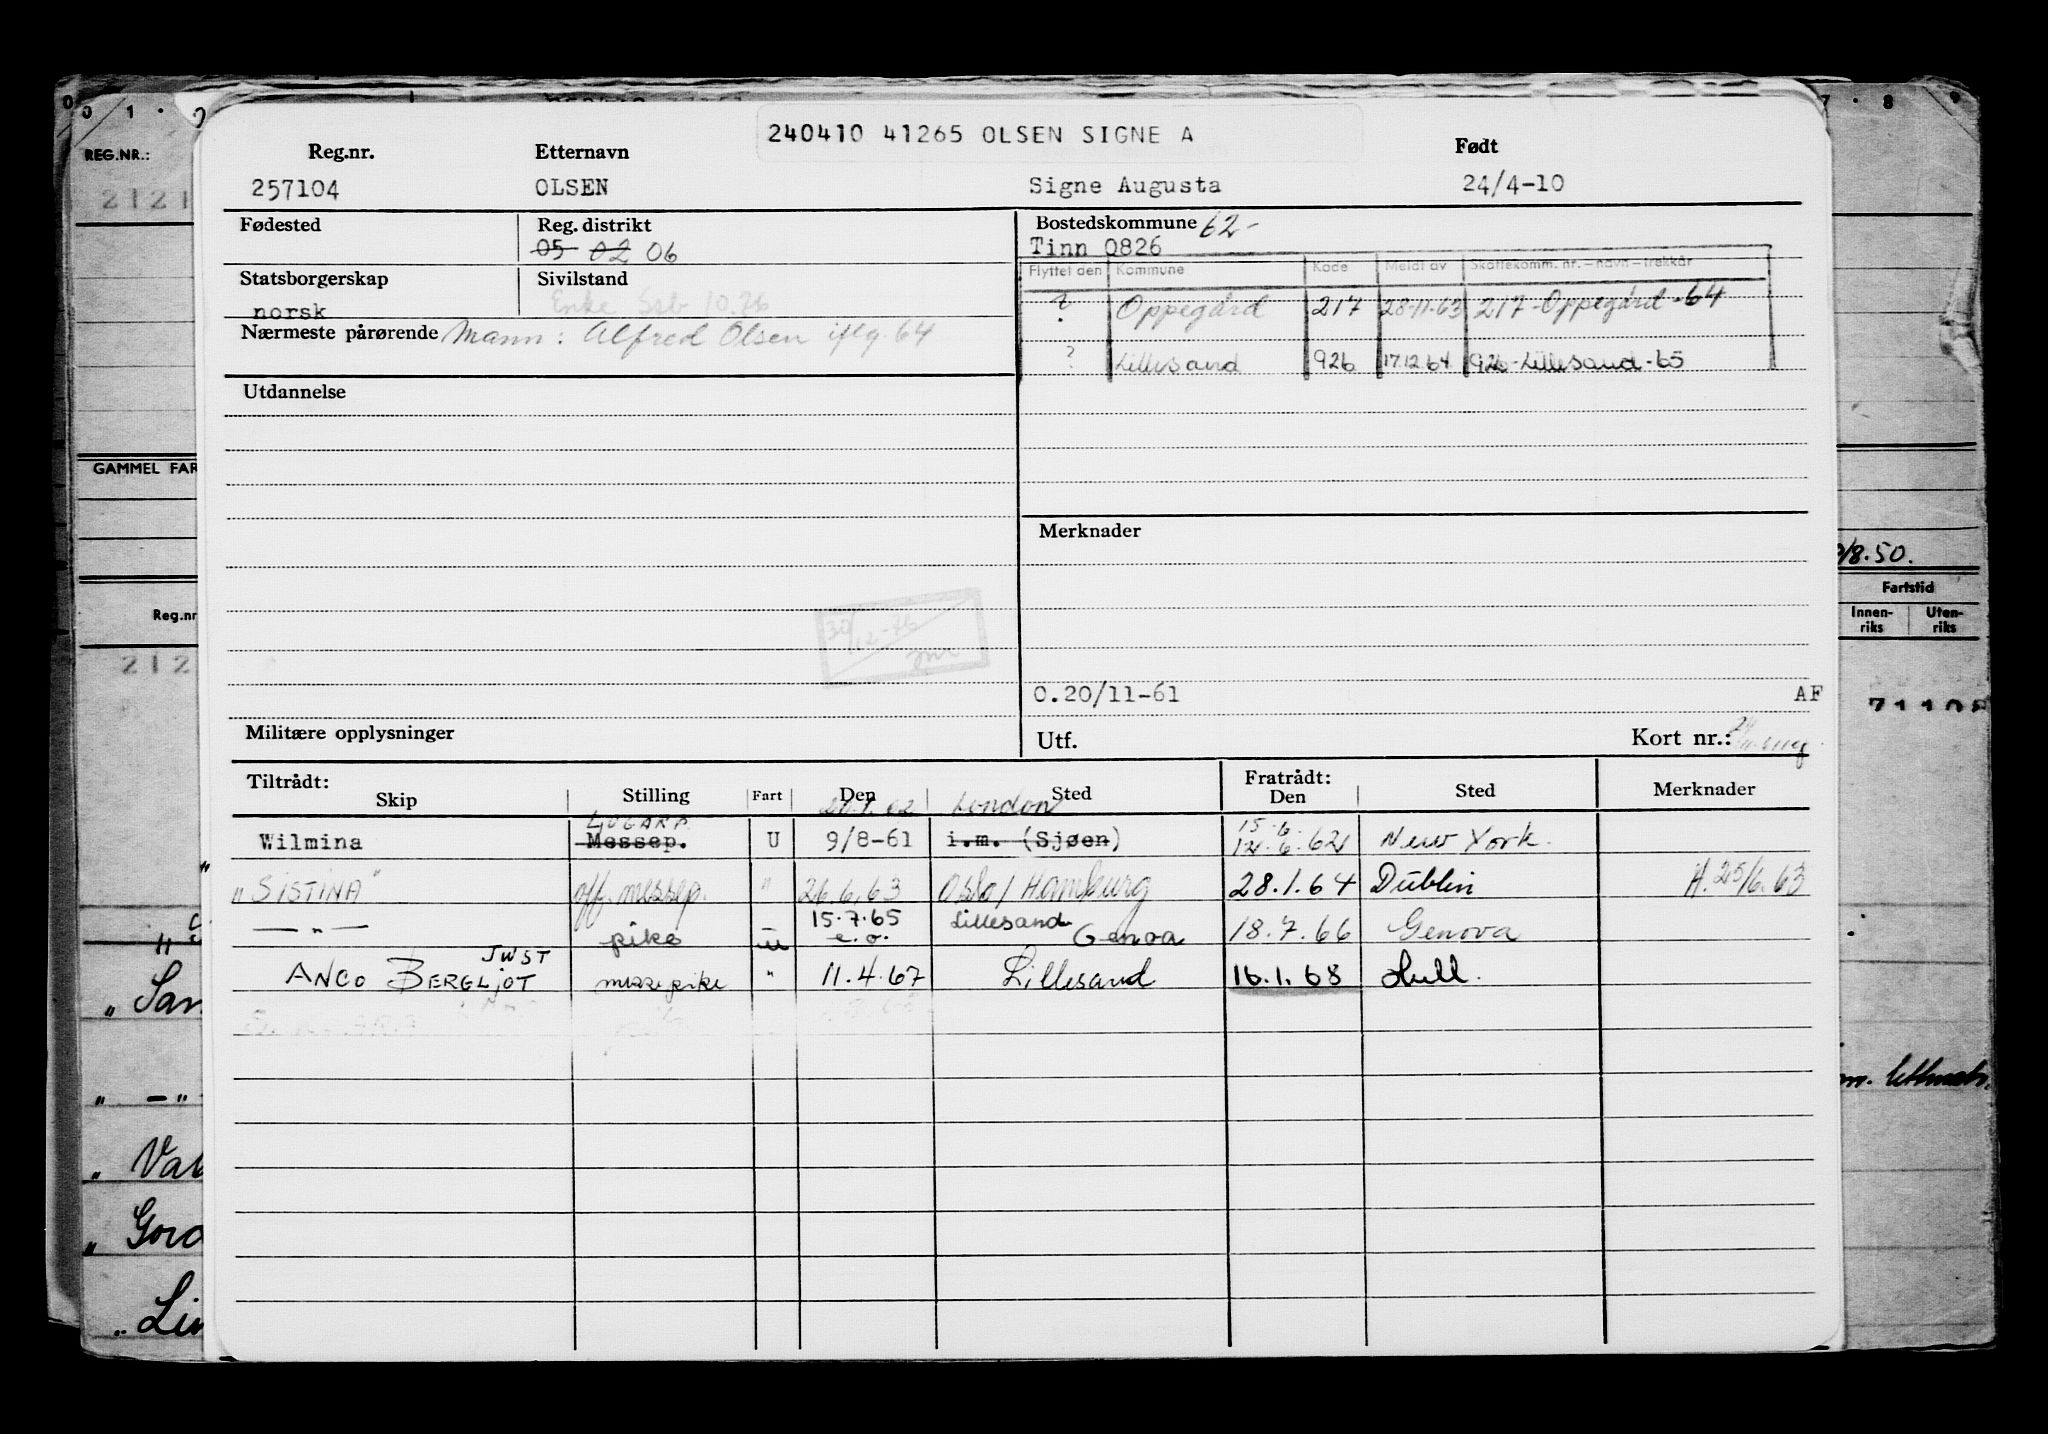 240410 41265 OLSEN SIGNE A
Reg.nr. Etternavn Født
257104 OLSEN Signe Augusta 24/4-10
Fødested Reg. distrikt Bostedskommune 62-
05 02 06 Tinn 0826
Statsborgerskap Sivilstand Flyttet den Kommune Kode Meldt av Skattekomm. nr. - navn - trekkår
norsk Enke Ssb 10.76 ? Oppegård 217 28-11-63 217-Oppegård-64
Nærmeste pårørende Mann: Alfred Olsen iflg. 64
? Lillesand 926 17.12.64 926-Lillesand-65
Utdannelse
Merknader
30/12-76
O.20/11-61 AF
Militære opplysninger Utf. Kort nr.:
Tiltrådt: Fratrådt:
Skip Stilling Fart Den Sted Den Sted Merknader
London
LUGARP. 15-6-
Wilmina Messep. U 9/8-61 i.m. (Sjøen) 12.6.62 New York.
"SISTINA" off. messep. " 26.6.63 Oslo/Hamburg 28.1.64 Dublin H.25/6.63
15.7.65 Lillesand
— " — pike e.o. Genoa 18.7.66 Genova
JWST
ANCO BERGLJOT messepike " 11.4.67 Lillesand 16.1.68 Hull.
REG.NR.:
GAMMEL FAR
Reg.nr
" San
" — "
" Val
" Gord
" Lin
7 · 8 · 9
/8.50.
Fartstid
Innen- Uten-
riks riks